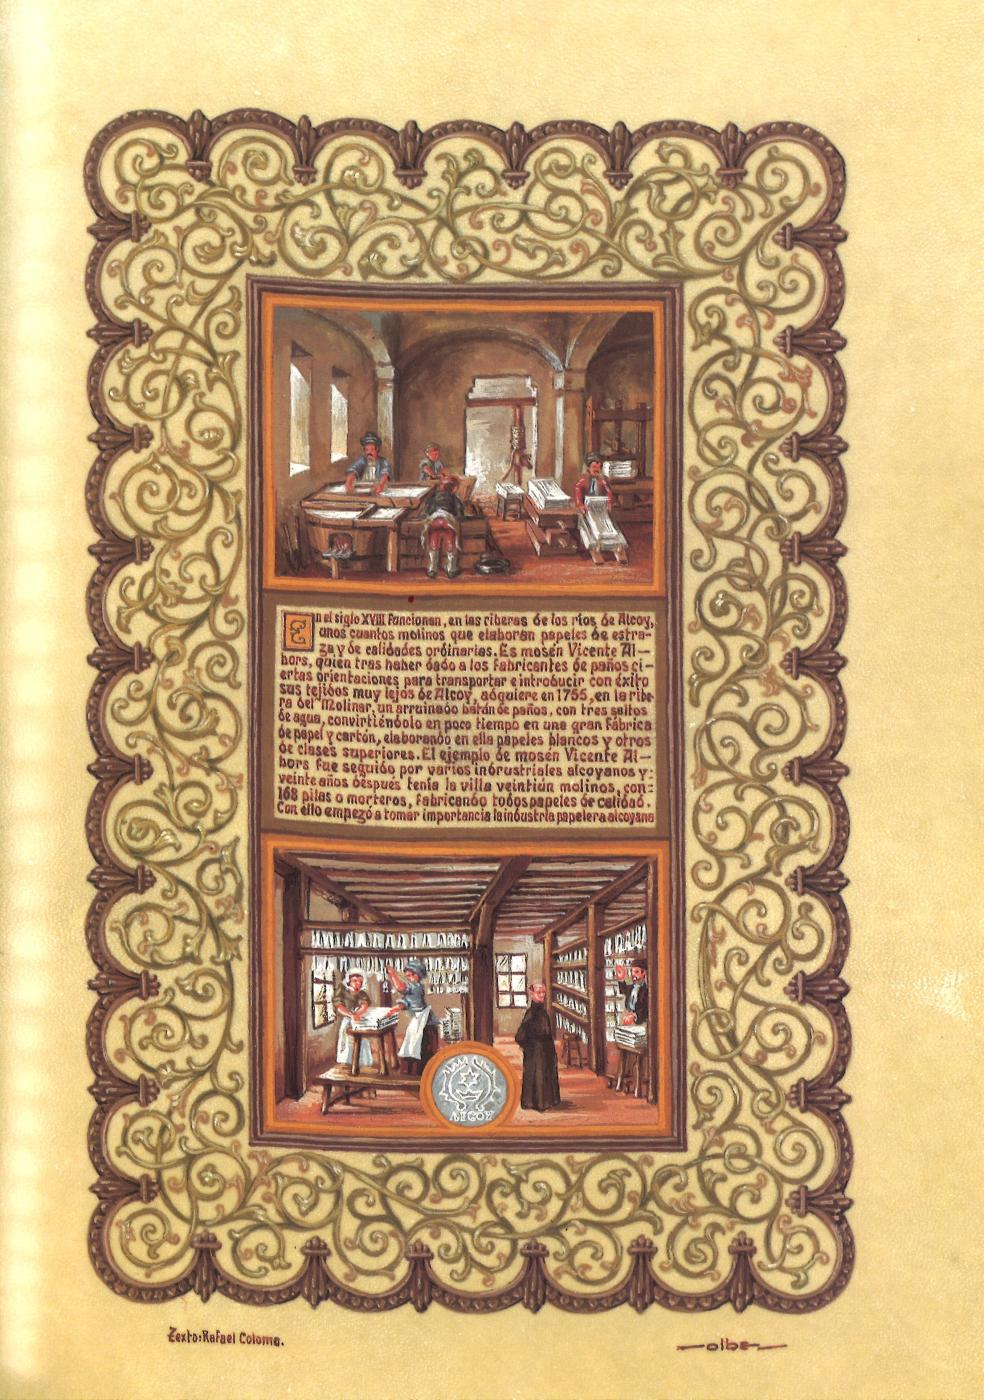 En el siglo XVIII funcionan, en las riberas de los ríos de Alcoy,
unos cuantos molinos que elaboran papeles de estra-
za y de calidades ordinarias. Es mosén Vicente Al-
bors, quien tras haber dado a los fabricantes de paños ci-
ertas orientaciones para transportar e introducir con éxito
sus tejidos muy lejos de Alcoy, adquiere en 1755, en la ribe-
ra del Molinar, un arruinado batán de paños, con tres saltos
de agua, convirtiéndolo en poco tiempo en una gran fábrica
de papel y cartón, elaborando en ella papeles blancos y otros
de clases superiores. El ejemplo de mosén Vicente Al-
bors fue seguido por varios indrustriales alcoyanos y:
veinte años después tenía la villa veintiún molinos, con:
168 pilas o morteros, fabricando todos papeles de calidad.
Con ello empezó a tomar importancia la industria papelera alcoyana
ALCOY
Texto: Rafael Coloma.
olba